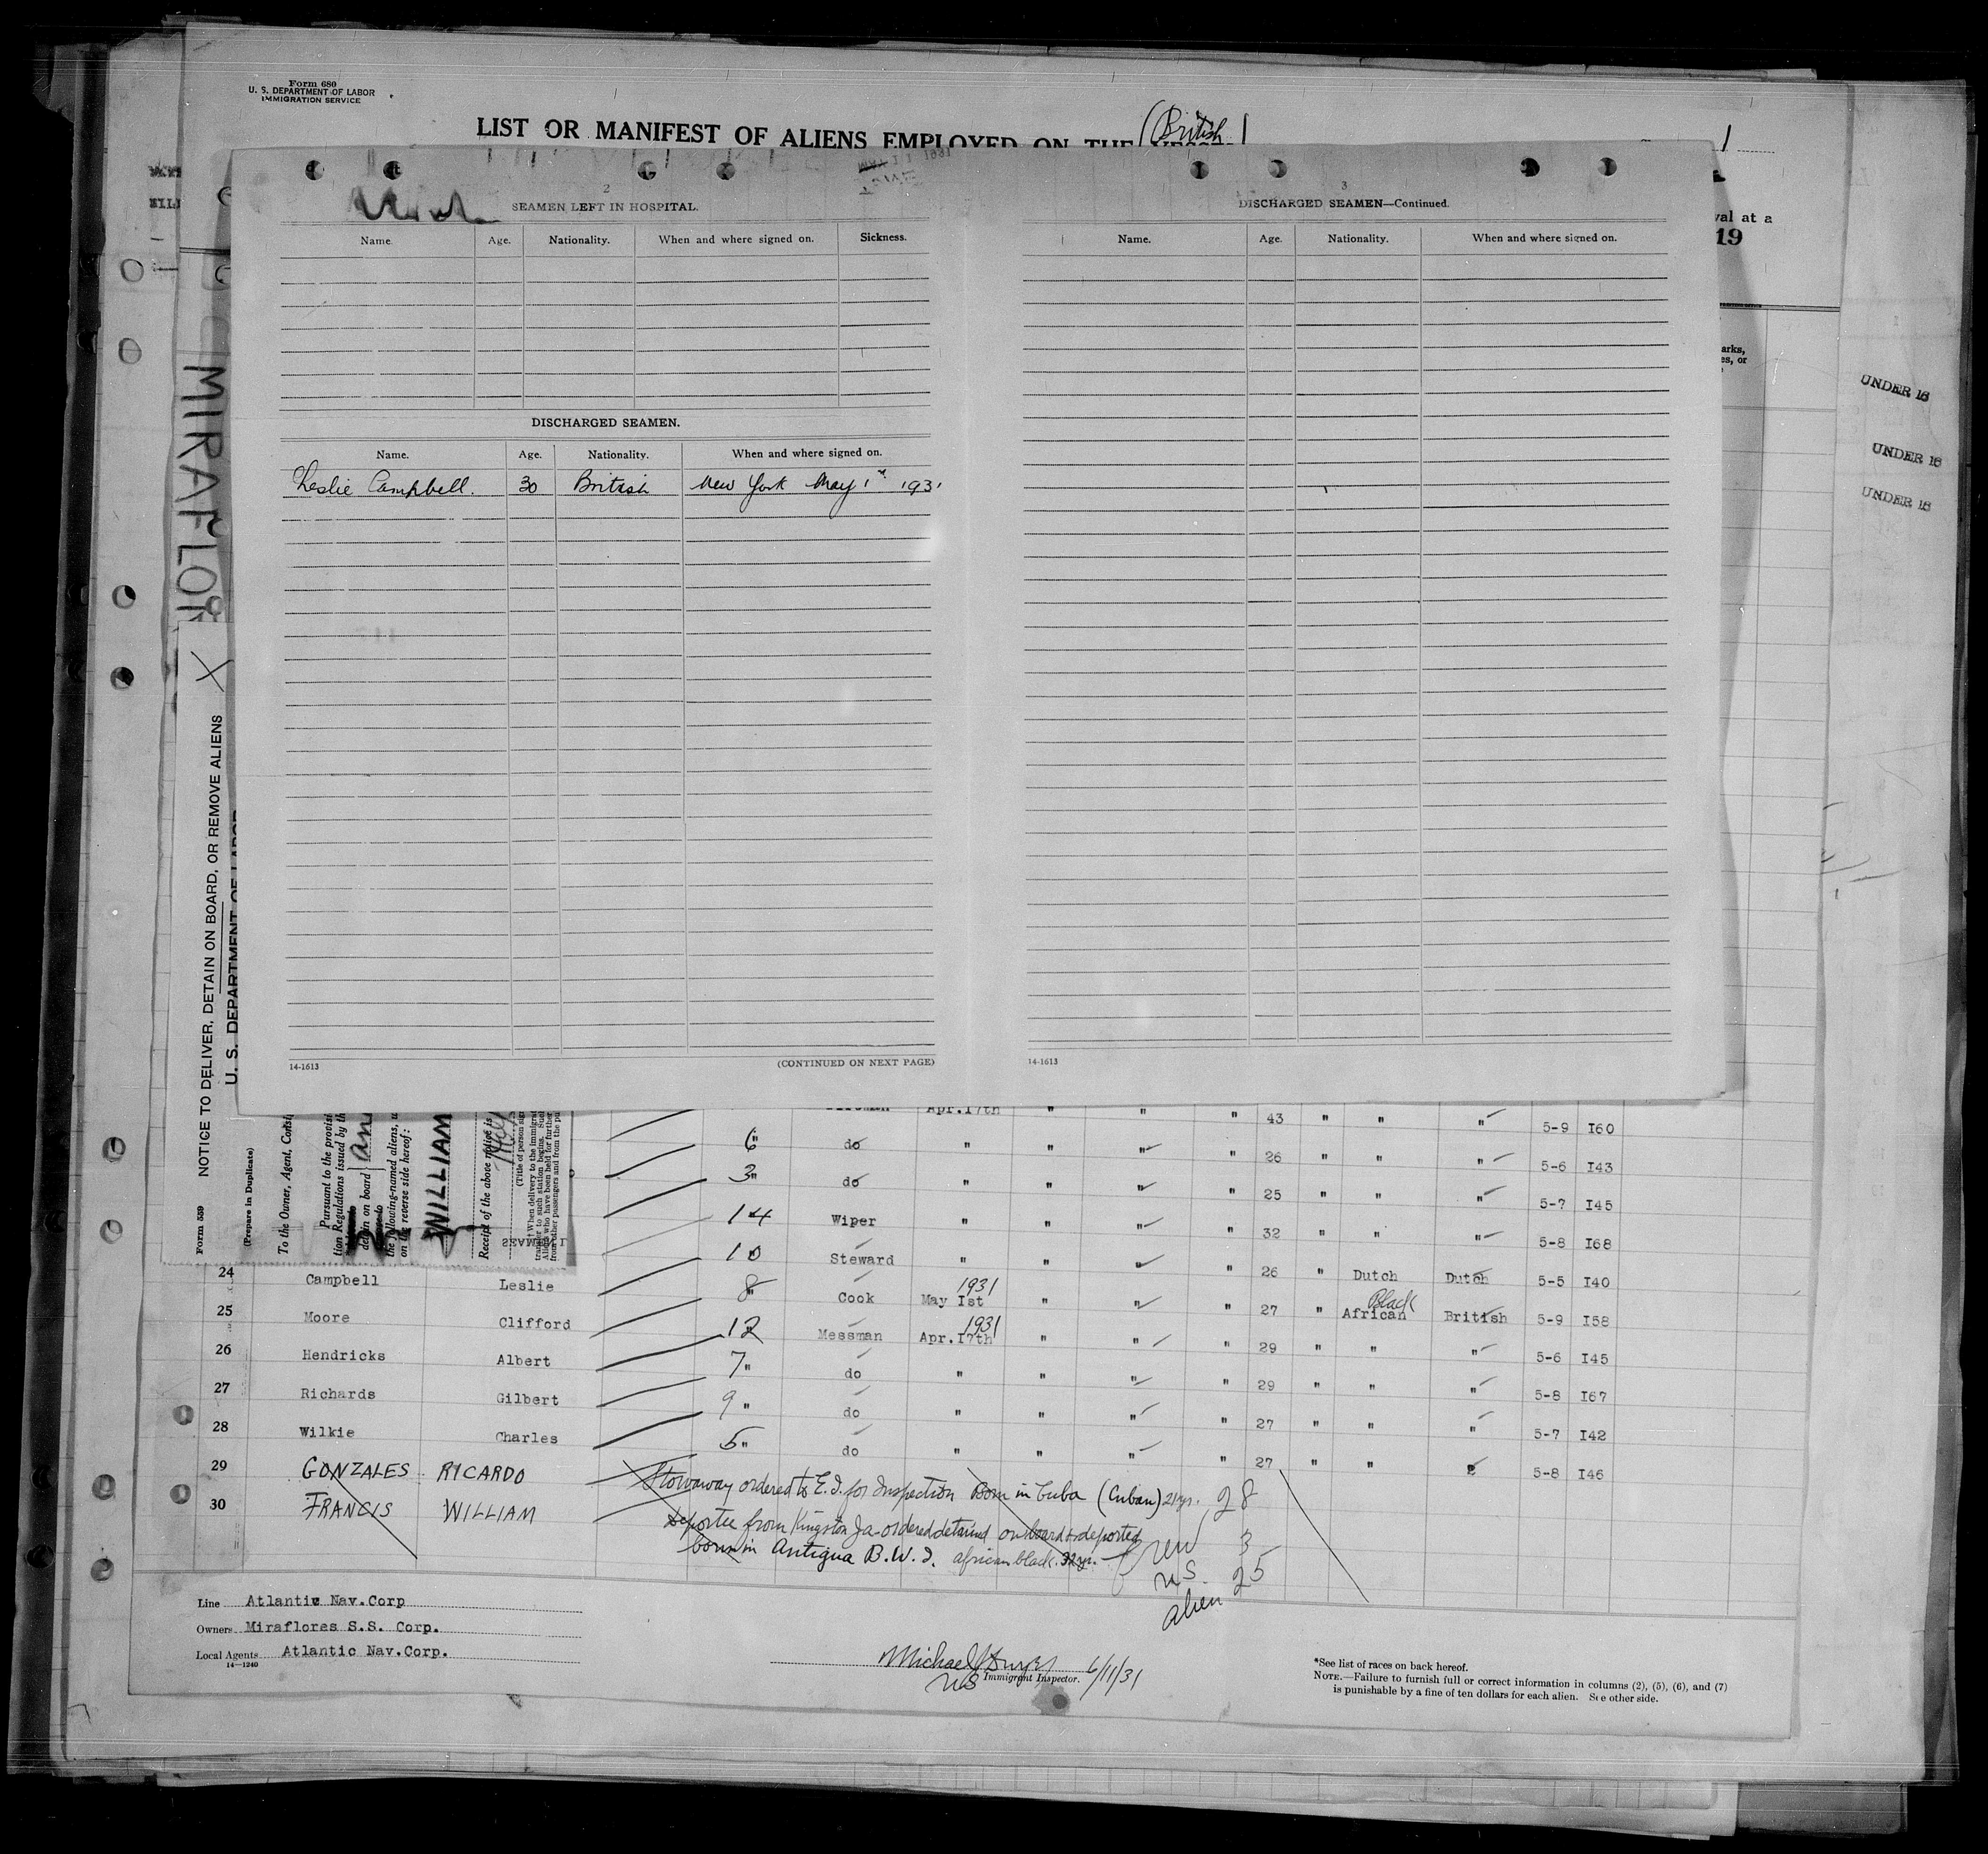 Form 680
U. S. DEPARTMENT OF LABOR
IMMIGRATION SERVICE
LIST OR MANIFEST OF ALIENS EMPLOYED ON THE
(British)
1
val at a
19
arks,
es, or
UNDER 16
UNDER 16
UNDER 16
2
SEAMEN LEFT IN HOSPITAL.
Name. Age. Nationality. When and where signed on. Sickness.
DISCHARGED SEAMEN.
Name. Age. Nationality. When and where signed on.
Leslie Campbell. 30 British New York May 1st 1931
14-1613 (CONTINUED ON NEXT PAGE)
3
DISCHARGED SEAMEN—Continued.
Name. Age. Nationality. When and where signed on.
14-1613
MIRAFLOR
X
Form 539
NOTICE TO DELIVER, DETAIN ON BOARD, OR REMOVE ALIENS
U. S. DEPARTMENT OF LABOR
(Prepare in Duplicate)
To the Owner, Agent, Consi
Pursuant to the provisi
tion Regulations issued by th
detain on board an
the following-named aliens, u
on the reverse side hereof:
WILLIAM
Receipt of the above notice is
(Title of person sig
When delivery to the immigrat
transfer to such station begins. Such
Aliens who have been held for further
from other passengers and from the pu
Apr.17th " " " 43 " " " 5-9 I60
6" do " " " " 26 " " " 5-6 I43
3" do " " " " 25 " " " 5-7 I45
14 Wiper " " " " 32 " " " 5-8 I68
10 Steward " " " " 26 " Dutch Dutch 5-5 I40
24 Campbell Leslie 8" Cook 1931 May Ist " " " 27 " Black African British 5-9 I58
25 Moore Clifford 12 Messman 1931 Apr.I7th " " " 29 " " " 5-6 I45
26 Hendricks Albert 7" do " " " " 29 " " " 5-8 I67
27 Richards Gilbert 9" do " " " " 27 " " " 5-7 I42
28 Wilkie Charles 5" do " " " " 27 " " " 5-8 I46
29 GONZALES RICARDO Stowaway ordered to E.I. for Inspection Born in Cuba (Cuban) 21 yr. 28
30 FRANCIS WILLIAM Deportee from Kingston Ja. ordered detained on board & deported
born in Antigua B.W.I. african black. 32 yr.
Crew
U.S. 3
alien 25
Line Atlantic Nav.Corp
Owners Miraflores S.S. Corp.
Local Agents Atlantic Nav.Corp.
14—1240
Michael J Dwyer 6/11/31
US Immigrant Inspector.
*See list of races on back hereof.
NOTE.—Failure to furnish full or correct information in columns (2), (5), (6), and (7)
is punishable by a fine of ten dollars for each alien. See other side.